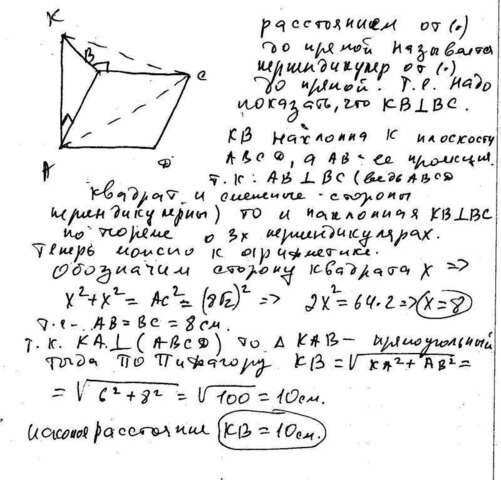 K
B
C
A
D
расстоянием от (·)
до прямой называется
перпендикуляр от (·)
до прямой. Т.е. надо
показать, что KB⊥BC.
KB наклонна к плоскости
ABCD, а AB - ее проекция.
т.к. AB⊥BC (ведь ABCD
квадрат и смежные стороны
перпендикулярны) то и наклонная KB⊥BC
по теореме о 3х перпендикулярах.
Теперь можно к арифметике.
Обозначим сторону квадрата x ⇒
x²+x² = AC² = (8√2)² ⇒ 2x² = 64·2 ⇒ x=8
т.е. AB=BC=8см.
т.к. KA⊥(ABCD) то △KAB - прямоугольный
тогда по Пифагору KB = √KA²+AB² =
= √6²+8² = √100 = 10см.
искомое расстояние KB=10см.